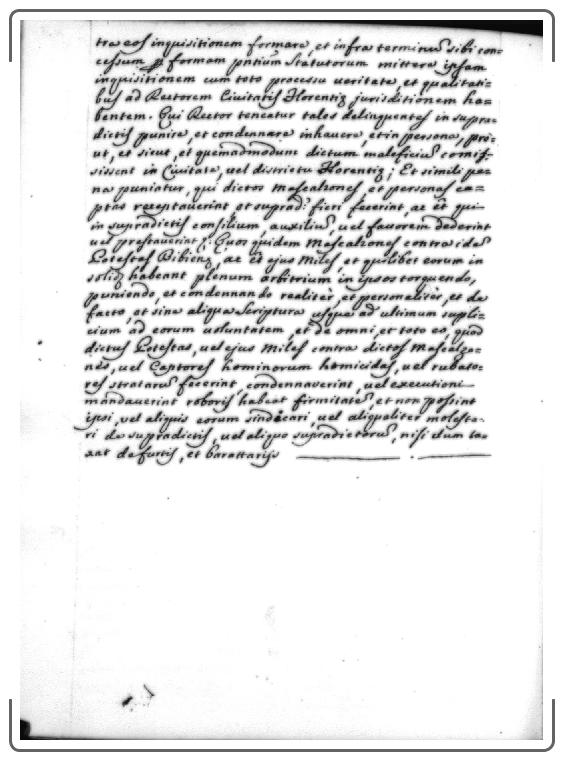 tra eos inquisitionem formare, et infra terminũ sibi con=
cessum ꝑ formam pñtium Statutorum mittere ipsam
inquisitionem cum toto processu veritate, et qualitati=
bus ad Rectorem Civitatis Florentiȩ jurisditionem ha=
bentem. Qui Rector teneatur tales delinquentes in supra=
dictis punire, et condennare in havere, et in persona, pro=
ut, et sicut, et quemadmodum dictum maleficiũ comis=
sissent in Civitate, vel districtu Florentiȩ; Et simili pe=
na puniatur, qui dictos Mascalzones, et personas ca=
ptas receptaverint et suprad: fieri fecerint, ac ẽt qui
in supradictis consilium, auxiliũ, vel favorem dederint
vel prestaverint; Quos quidem Mascalzones contra idẽ
Potestas Bibienȩ, ac ẽt ejus Miles, et quilibet eorum in
solidȩ habeant plenum arbitrium in ipsos torquendo,
puniendo, et condennando realitèr, et personalitèr, et de
facto, et sine aliqua Scriptura usque ad ultimum supli=
cium ad eorum voluntatem, et de omni, et toto eo, quod
dictus Potestas, vel ejus Miles contra dictos Mascalzo=
nes, vel Captores hominorum homicidas, vel rubato=
res stratarũ fecerint, condennaverint, vel executioni
mandaverint roboris habeat firmitatẽ, et non possint
ipsi, vel aliquis eorum sindicari, vel aliqualiter molesta=
ri de supradictis, vel aliquo supradictorũ, nisi dum ta=
xat de furtis, et barattarijs